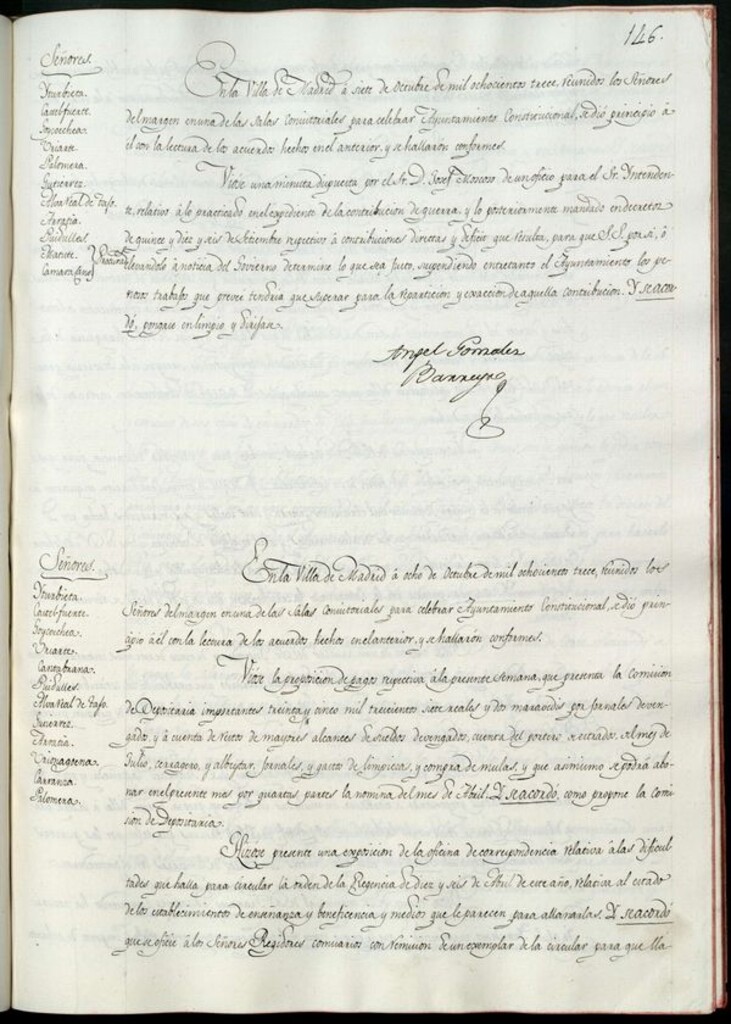 146.
Señores.
Yturbieta.
Castelfuerte.
Goycoechea.
Uriarte.
Palomera.
Gutierrez.
Monreal de
Arratia.
Ruidulles.
Matute.
Camara (Ano)
En la Villa de Madrid á siete de Octubre de mil ochocientos trece, reunidos los Señores
del margen en una de las Salas Consistoriales para celebrar Ayuntamiento Constitucional, se dió principio á
él con la lectura de los acuerdos hechos en el anterior, y se hallaron conformes.
Vióse una minuta dispuesta por el Sr. D. Josef Moscoso de un oficio para el Sr. Yntenden-
te, relativo á lo practicado en el expediente de la contribucion de guerra, y lo posteriormente mandado en decretos
de quince y diez y seis de Setiembre respectivo á contribuciones directas y deficit que resulta, para que S.S. por sí, ó
llevandolo á noticia del Govierno determine lo que sea justo, suspendiendo entretanto el Ayuntamiento los pe-
nosos trabajos que preveé tendria que superar para la reparticion y exaccion de aquella contribucion. Y se acor-
dó, pongase en limpio y dirijase.
Angel Gonzalez
Barreyro
Señores.
Yturbieta.
Castelfuerte.
Goycoechea.
Uriarte.
Cantabrana.
Ruidulles.
Monreal de
Gutierrez.
Arratia.
Urizagoena.
Carranza.
Palomera.
En la Villa de Madrid á ocho de Octubre de mil ochocientos trece, reunidos los
Señores del margen en una de las Salas Consistoriales para celebrar Ayuntamiento Constitucional, se dió prin-
cipio á él con la lectura de los acuerdos hechos en el anterior, y se hallaron conformes.
Vióse la proposicion de pagos respectiva á la presente Semana, que presenta la Comision
de Depositaria importantes treinta y cinco mil trescientos siete reales y dos maravedis por jornales deven-
gados, y á cuenta de restos de mayores alcances de sueldos devengados, cuenta del portero de estrados, al mes de
Julio, cerragero, y albeytar, jornales, y gastos de limpiezas, y compra de mulas, y que asimismo se podrá abo-
nar en el presente mes por quartas partes la nomina del mes de Abril. Y se acordó, como propone la Comi-
sion de Depositaria.
Hizose presente una exposicion de la oficina de correspondencia relativa á las dificul-
tades que halla para circular la orden de la Regencia de diez y seis de Abril de este año, relativa al estado
de los establecimientos de enseñanza y beneficencia y medios que le parecen para allanarlas. Y se acordó
que se oficie á los Señores Regidores comisarios con remision de un exemplar de la circular para que lla-